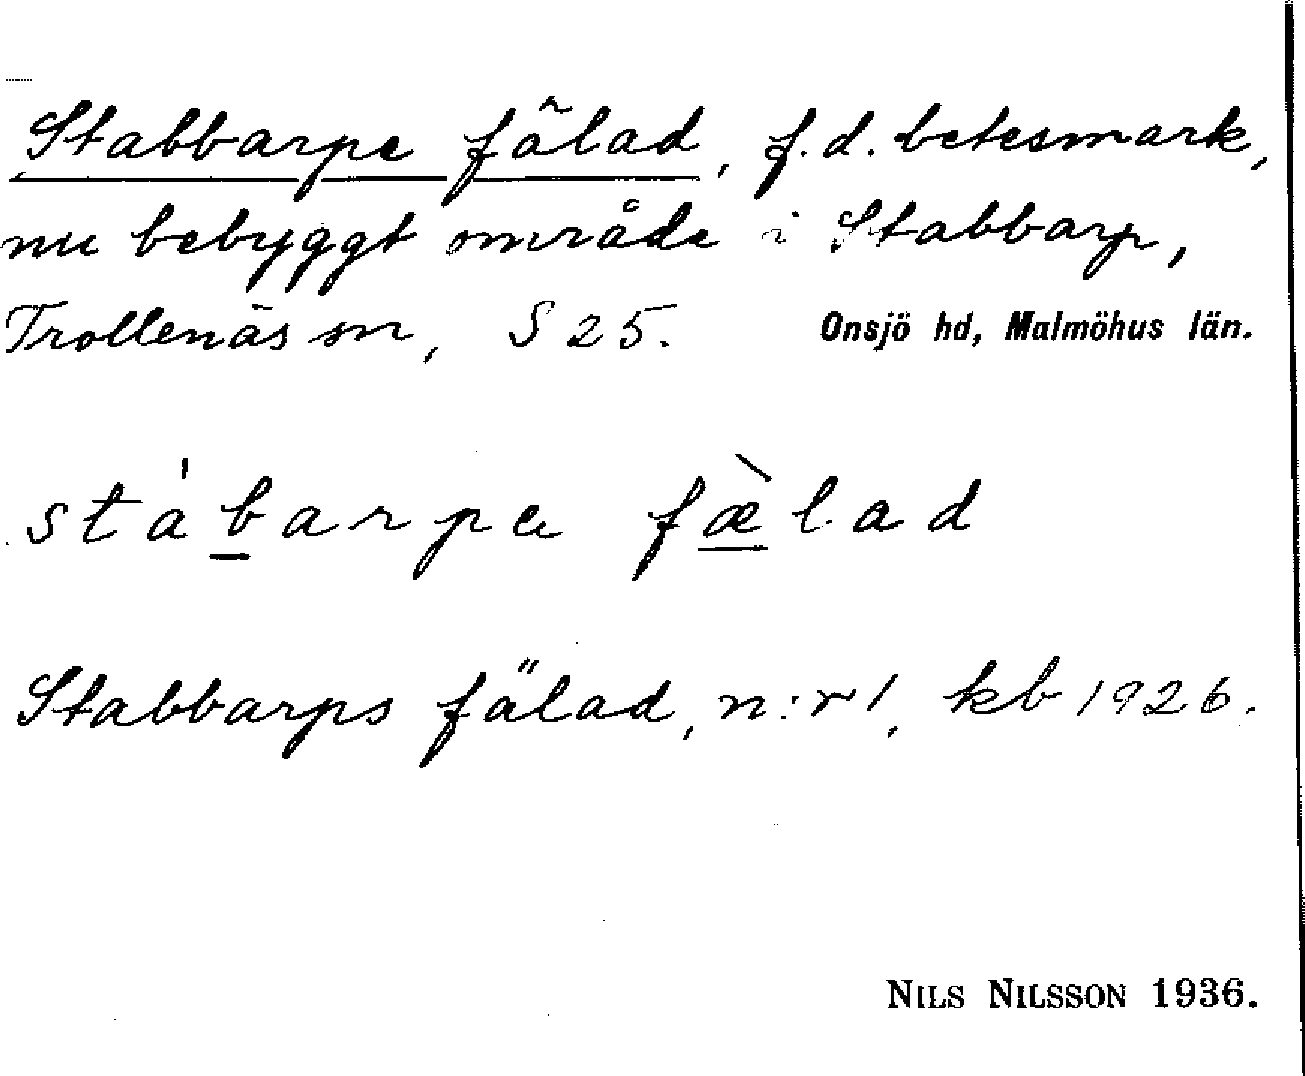 Stabbarpe fälad, f.d. betesmark,
nu bebyggt område i Stabbarp,
Trollenäs sn, S 25. Onsjö hd, Malmöhus län.
stábarpa fæ̀lad
Stabbarps fälad, n:r 1, kb 1926.
NILS NILSSON 1936.